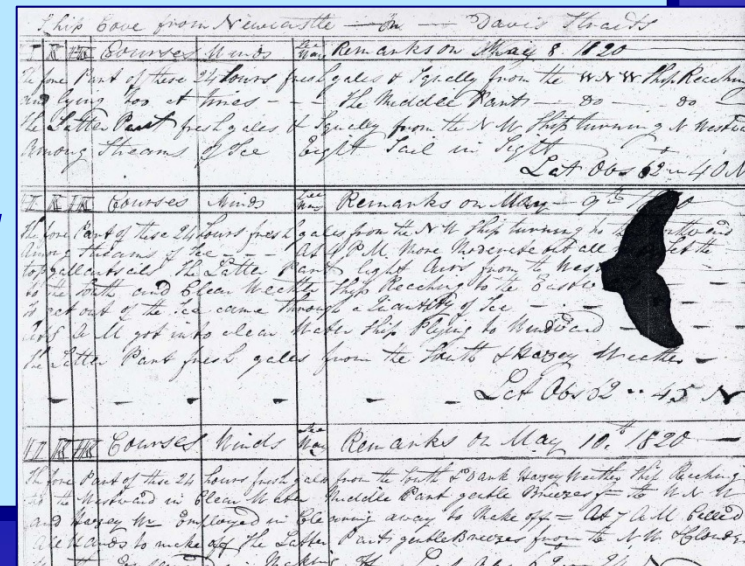 Ship Cove from Newcastle — On — Davis Straits
H K HK Courses Winds Lee Way Remarks on May 8. 1820
The fore Part of these 24 hours fresh gales & Squelly from the W N W Ship Reeching
and lying too at times - - - The Middle Parts — do — do —
The Latter Part fresh gales & Squelly from the N W Ship turning N Westw
Among Streams of Ice Eight Sail in Sight
Lat Obs 62 .. 40 N
H K HK Courses Winds Lee Way Remarks on May — 9th
The fore Part of these 24 hours fresh gales from the N W Ship turning to the
Among Streams of Ice - - - At 4 P.M. More Moderate all Set the
top gallantsails. The Latter Part light Airs from the West
to the South and Clear Weather Ship Reeching to the Eastw
to get out of the Ice came through a Quantity of Ice - - -
A M got into clear Water Ship Plying to Windward - -
The Latter Part fresh gales from the South & Hazey Weather -
Lat Obs 62 .. 45 N
H K HK Courses Winds Lee Way Remarks on May 10th 1820 —
The fore Part of these 24 hours fresh gales from the South & Dark Hazey Weather Ship Reeching
to the Westward in Clear Water Middle Part gentle Breezes from the W N W
and Hazey Wr Employed in Clearing away to Make off = At 7 A M Called
all Hands to make off The Latter Part gentle Breezes from the N W &
Making Lat Obs N